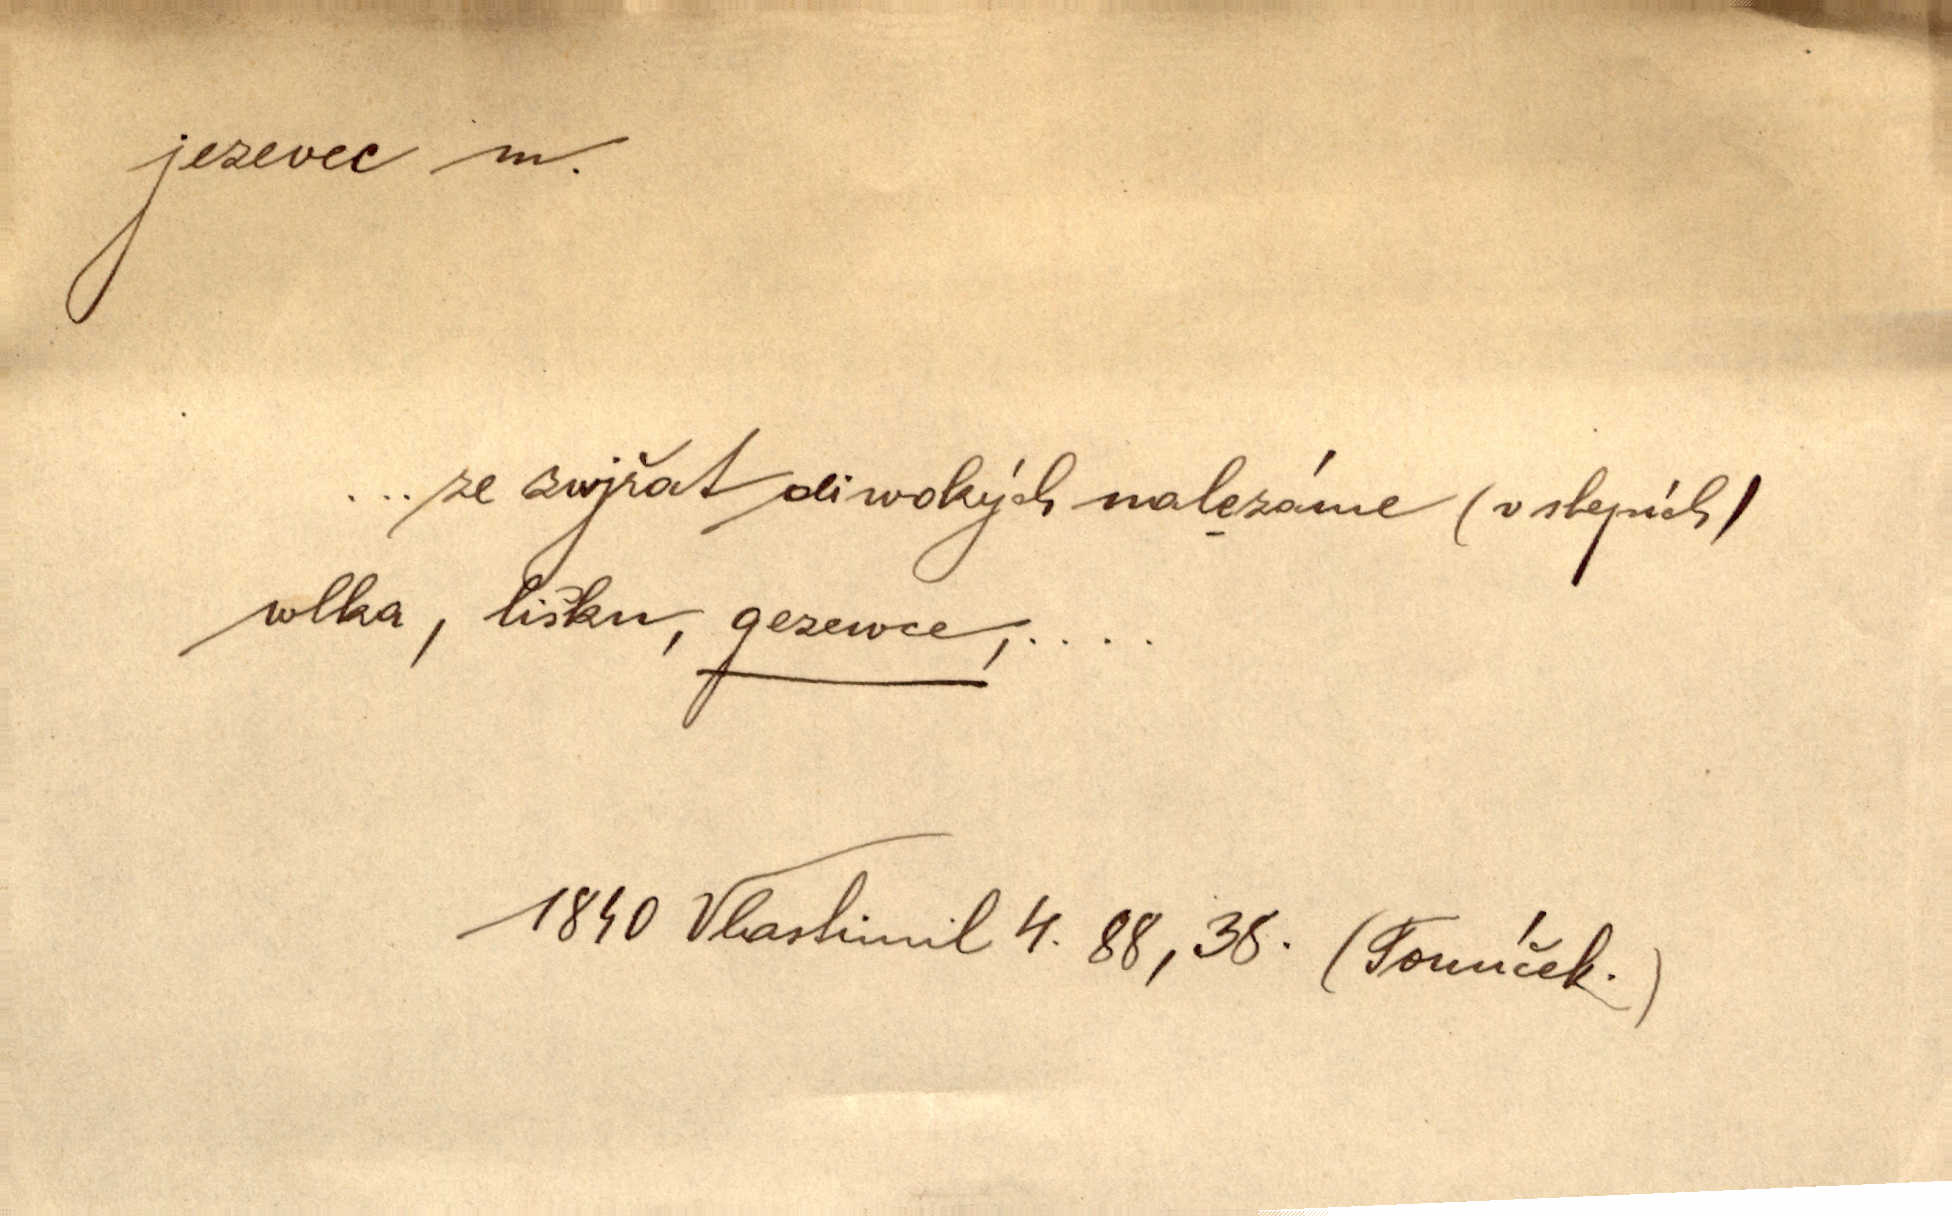 jezevec m.
... ze zwjřat diwokých nalezáme (v stepích)
wlka, lišku, gezewce,....
1840 Vlastimil 4. 88, 38. (Tomíček.)